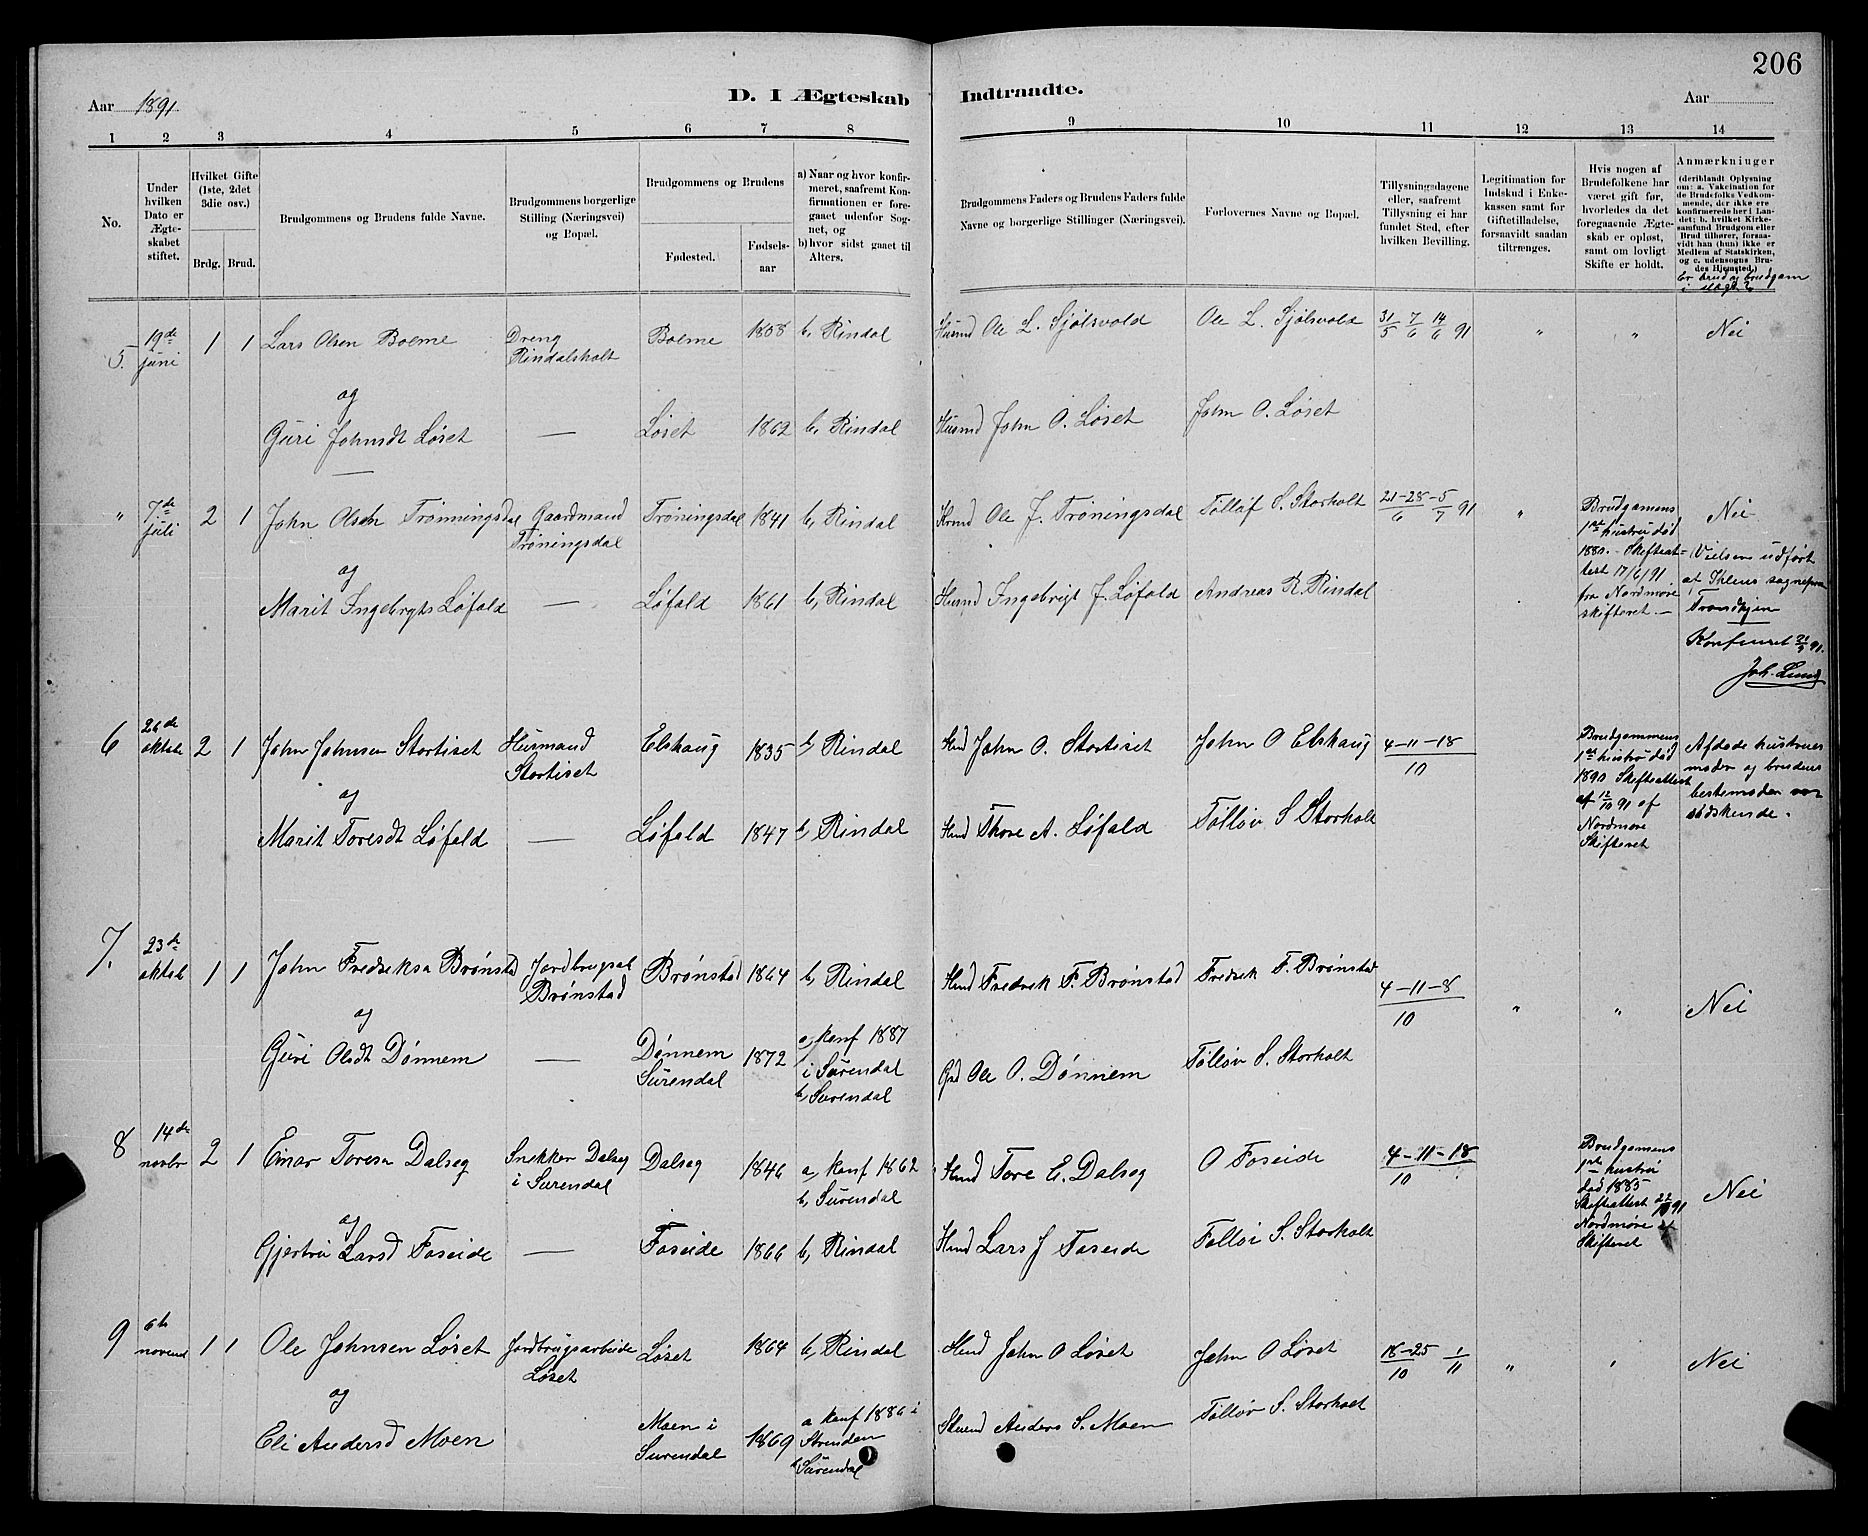 206
Aar 1891
D. I Ægteskab Indtraadte.
Aar
1 2 3 4 5 6 7 8 9 10 11 12 13 14
No.
Under hvilken Dato er Ægteskabet stiftet.
Hvilket Gifte (1ste, 2det 3die osv.)
Brdg. Brud.
Brudgommens og Brudens fulde Navne.
Brudgommens borgerlige Stilling (Næringsvei) og Bopæl.
Brudgommens og Brudens
Fødested.
Fødselsaar
a) Naar og hvor konfirmeret, saafremt Konfirmationen er foregaaet udenfor Sognet, og
b) hvor sidst gaaet til Alters.
Brudgommens Faders og Brudens Faders fulde Navne og borgerlige Stillinger (Næringsvei).
Forlovernes Navne og Bopæl.
Tillysningsdagene eller, saafremt Tillysning ei har fundet Sted, efter hvilken Bevilling.
Legitimation for Indskud i Enkekassen samt for Giftetilladelse, forsaavidt saadan tiltrænges.
Hvis nogen af Brudefolkene har været gift før, hvorledes da det foregaaende Ægteskab er opløst, samt om lovligt Skifte er holdt.
Anmærkninger (deriblandt Oplysning om: a. Vakcination for de Brudefolks Vedkommende, der ikke ere konfirmerede her i Landet; b. hvilket Kirkesamfund Brudgom eller Brud tilhører, forsaavidt han (hun) ikke er Medlem af Statskirken, og c. udensogns Brudes Hjemsted.)
Er brud og brudgom
5. 19de juni 1 1 Lars Olsen Bolme Dreng Rindalsholt Bolme 1858 b, Rindal Husmd Ole L. Sjølsvold Ole L. Sjølsvold 31/5 7/6 14/6 91 " " Nei
og
Guri Johnsdt Løset — Løset 1862 b, Rindal Husmd John O. Løset John O. Løset
" 7de juli 2 1 John Olsen Trønningsdal Gaardmand Trøningsdal Trøningsdal 1841 b, Rindal Ole J. Trøningsdal Tølløf S. Storholt 21-28/6 -5/7 91 " Brudgomens 1ste hustru død 1880. - Skifteattest 17/6/91 fra Nordmøre skifteret. — Nei
(Vielsen udført
Trondhjem
og
Marit Ingebrgts Løfald — Løfald 1861 b, Rindal Husmd Ingebrigt J. Løfald Andreas R. Rindal
Joh. Lund
6 26de oktob 2 1 John Johnsen Stortiset Husmand Stortiset Elshaug 1835 b, Rindal Hmd John O. Stortiset John O Elshaug 4-11-18/10 Brudgommens 1ste hustru død 1890 Skifteattest af 12/10 91 af Nordmøre Skifteret Afdøde hustrues moder og brudens bestemoder var sødskende.
og
Marit Toresdt Løfald — Løfald 1847 b, Rindal Hmd Thore A. Løfald Tølløv S Storholt
7. 23de oktob 1 1 John Fredriksn Brønstad Brønstad Brønstad 1864 b, Rindal Hmd Fredrik F. Brønstad Fredrik F. Brønstad 4-11-8/10 " " Nei
og
Guri Olsdt Dønnem — Dønnem Surendal 1872 a, konf 1887 i Surendal b, Surendal Ole O. Dønnem Tølløv S. Storholt
8 14de novbr 2 1 Einar Toresn Dalseg Snekker Dalseg i Surendal Dalseg 1846 a, konf 1862 b, Surendal Hmd Tore E. Dalseg O Foseide 4-11-18/10 Brudgomens 1ste hustru død 1885 Skifteattest 22/10 91 Nordmøre Skifteret Nei
og
Gjertru Larsd Foseide — Foseide 1866 b, Rindal Hmd Lars J Foseide Tølløv S. Storholt
9 6te novemb 1 1 Ole Johnsen Løset Jordbrugsarbeide Løset Løset 1864 b, Rindal Hmd John O Løset John O Løset 18-25/10 1/11 " " Nei
og
Eli Andersd Moen Moen i Surendal 1869 a konf 1886 i b, Surendal Anders S. Moen Tølløv S. Storholt